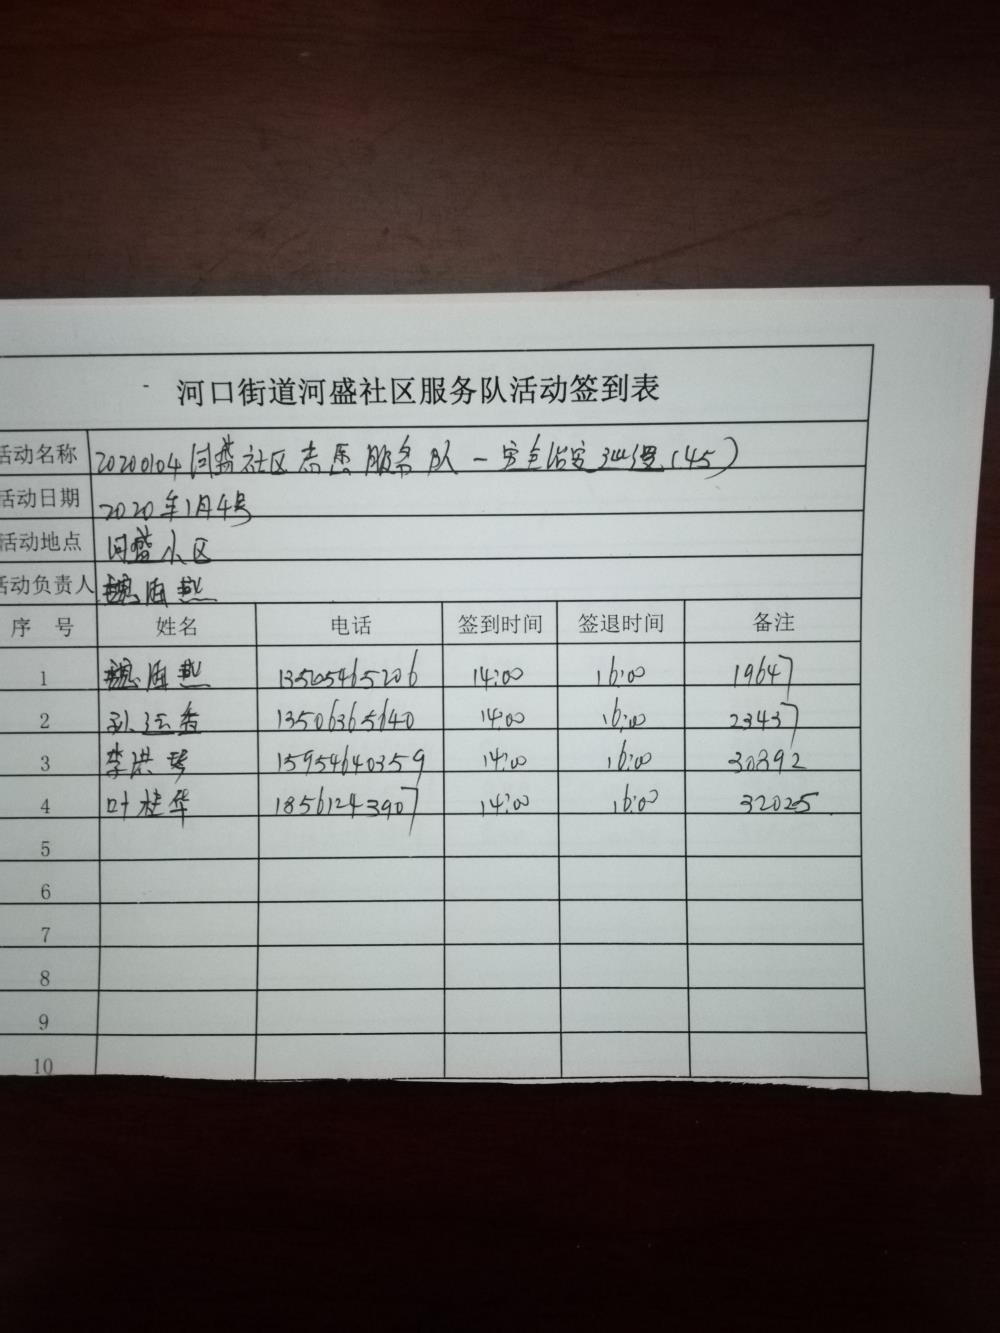 河口街道河盛社区服务队活动签到表
活动名称 20200104河盛社区志愿服务队-安全治安巡逻(45)
活动日期 2020年1月4号
活动地点 河盛小区
活动负责人 魏海燕
序号 姓名 电话 签到时间 签退时间 备注
1 魏海燕 13505465206 14:00 16:00 19647
2 孙 香 13506365640 14:00 16:00 23437
3 李洪琴 15954640359 14:00 16:00 30392
4 叶桂华 18561243907 14:00 16:00 32025
5
6
7
8
9
10